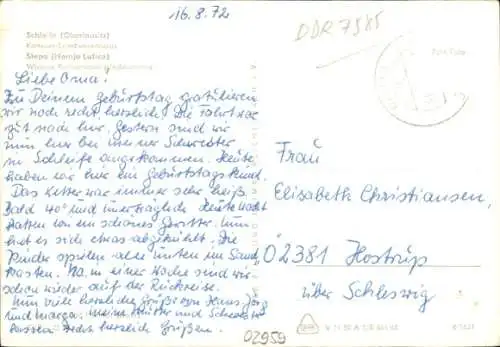 16.8.72
DDR 7985
Schleife (Oberlausitz)
Slepo (Hornja Łužica)
Liebe Oma!
Zu Deinem Geburtstag gratulieren
wir noch recht herzlich. Die Fahrt war
gut nach hier. Gestern sind wir
nun hier bei meiner Schwester
in Schleife angekommen. Heute
haben wir hier ein Geburtstagskind.
Das Wetter war immer sehr heiß.
Bald 40° und unerträglich. Heute Nacht
hatten wir ein schönes Gewitter. Nun
hat es sich etwas abgekühlt. Die
Kinder spielen alle unten im Sand-
kasten. Na, in einer Woche sind wir
schon wieder auf der Rückreise.
Nun viele herzliche Grüße von Hans Jörg
und Marga. Meine Mutter und Schwester
lassen recht herzlich Grüßen.
Frau
Elisabeth Christiansen,
02381 Hostrup
über Schleswig
02959